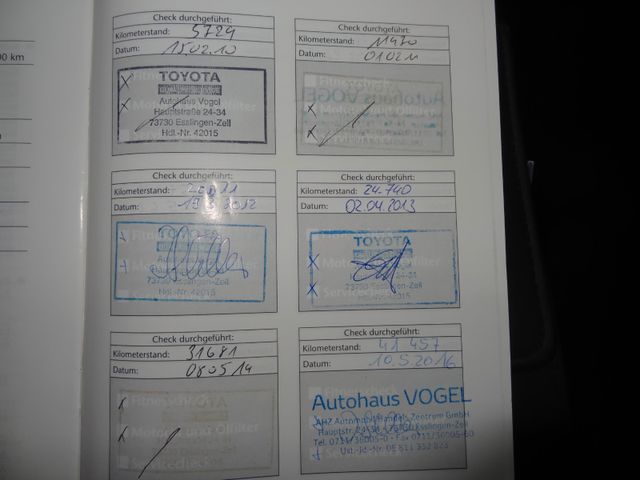 00 km
Check durchgeführt:
Kilometerstand: 5729
Datum: 15.02.10
Fitness
TOYOTA
Autohaus Vogel
Hauptstraße 24-34
73730 Esslingen-Zell
Hdl.-Nr. 42015
Check durchgeführt:
Kilometerstand: 11470
Datum: 01.02.11
Autohaus VOGEL
Check durchgeführt:
Kilometerstand:
Datum:
TOYOTA
73730 Esslingen-Zell
Hdl.-Nr. 42015
Check durchgeführt:
Kilometerstand: 24.740
Datum: 02.04.2013
TOYOTA
24-34
73730 Esslingen-Zell
Check durchgeführt:
Kilometerstand: 31681
Datum: 080514
Fitnesscheck
Motoröl und Ölfilter
Servicecheck
Check durchgeführt:
Kilometerstand: 41 457
Datum: 10.5.2016
Autohaus VOGEL
AHZ Automobil-Handels-Zentrum GmbH
Hauptstr. 24-34 - 73730 Esslingen-Zell
Tel. 0711/36005-0 - Fax 0711/36005-60
Ust.-Id-Nr. DE 811 352 823